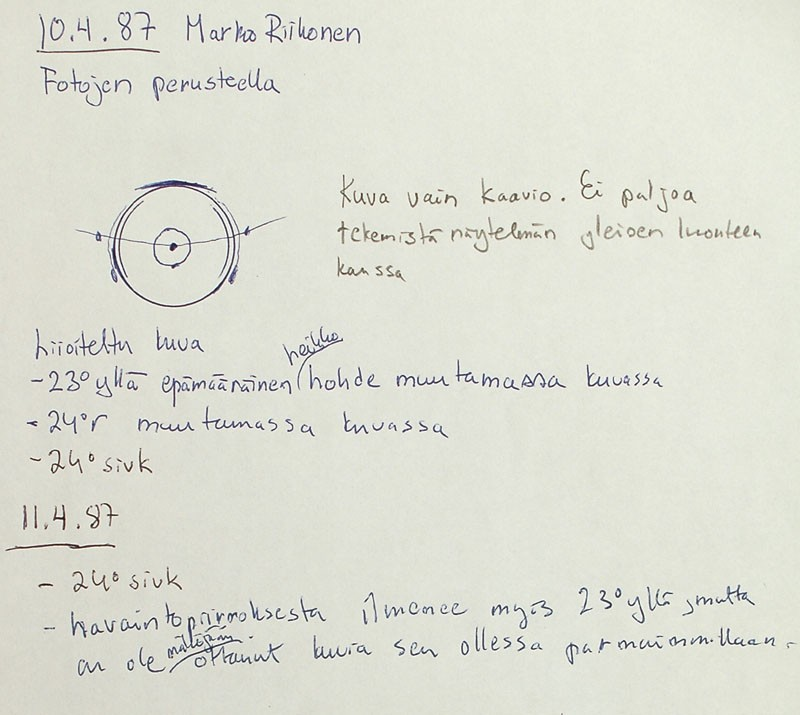 10.4.87 Marko Riikonen
Fotojen perusteella
Kuva vain kaavio. Ei paljoa
tekemistä näytelmän yleisen luonteen
kanssa
Liioiteltu kuva
heikko
- 23° yllä epämääräinen hohde muutamassa kuvassa
- 24°r muutamassa kuvassa
- 24° sivk
11.4.87
- 24° sivk
- havaintopiirroksesta ilmenee myös 23° yllä, mutta
en ole ottanut kuvia sen ollessa parhaimmillaan.